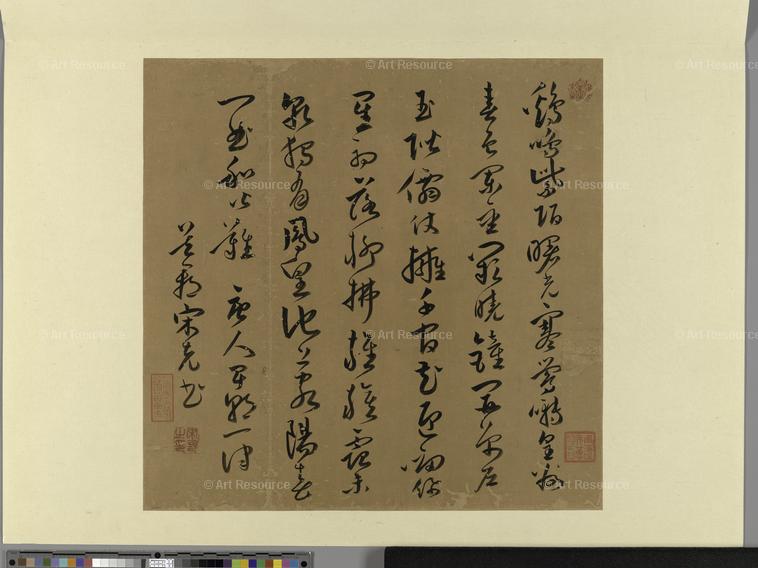 鷄鳴紫陌曙光寒鶯囀皇州
春色闌金闕曉鐘開萬戶
玉階僊仗擁千官花迎劍佩
星初落柳拂旌旗露未
乾獨有鳳皇池上客陽春
一曲和皆難 唐人早朝一律
吳郡宋克書
© Art Resource
© Art Resource
© Art Resource
© Art Resource
© Art Resource
© Art Resource
© Art Resource
© Art Resource
© Art Resource
© Art Resource
© Art Resource
© Art Resource